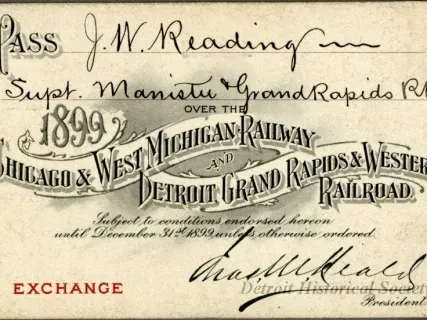 PASS J. W. Reading
Supt. Manistee & Grand Rapids R
OVER THE
1899
CHICAGO & WEST MICHIGAN RAILWAY
AND
DETROIT GRAND RAPIDS & WESTER
RAILROAD.
Subject to conditions endorsed hereon
until December 31st 1899, unless otherwise ordered.
Chas M Heald
EXCHANGE
Detroit Historical Society
President